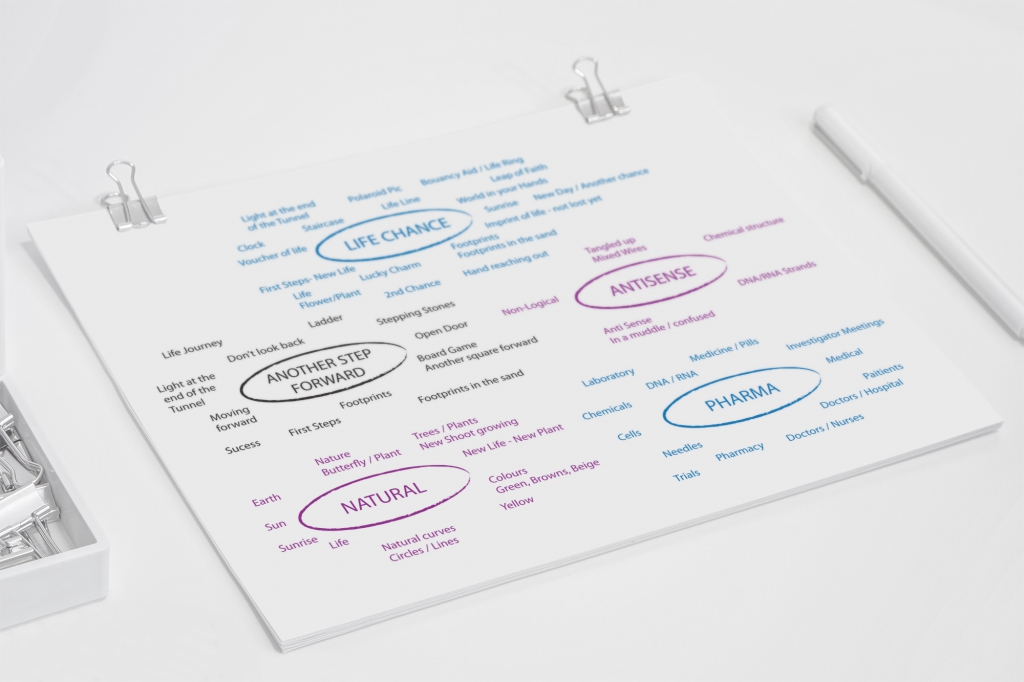 Bouancy Aid / Life Ring
Polaroid Pic
Leap of Faith
Life Line
World in your Hands
Light at the end
of the Tunnel
Staircase
Sunrise
New Day / Another chance
Imprint of life - not lost yet
LIFE CHANCE
Clock
Voucher of life
Footprints
Footprints in the sand
First Steps- New Life
Lucky Charm
Hand reaching out
Life
Flower/Plant
2nd Chance
Tangled up
Mixed Wires
Chemical structure
ANTISENSE
DNA/RNA Strands
Non-Logical
Anti Sense
In a muddle / confused
Ladder
Stepping Stones
Life Journey
Don't look back
Open Door
ANOTHER STEP
FORWARD
Board Game
Another square forward
Light at the
end of the
Tunnel
Moving
forward
Footprints
Footprints in the sand
Sucess
First Steps
Medicine / Pills
Investigator Meetings
Laboratory
DNA / RNA
Medical
PHARMA
Paitients
Doctors / Hospital
Chemicals
Cells
Needles
Pharmacy
Doctors / Nurses
Trials
Trees / Plants
New Shoot growing
Nature
Butterfly / Plant
New Life - New Plant
Earth
NATURAL
Colours
Green, Browns, Beige
Yellow
Sun
Sunrise
Life
Natural curves
Circles / Lines